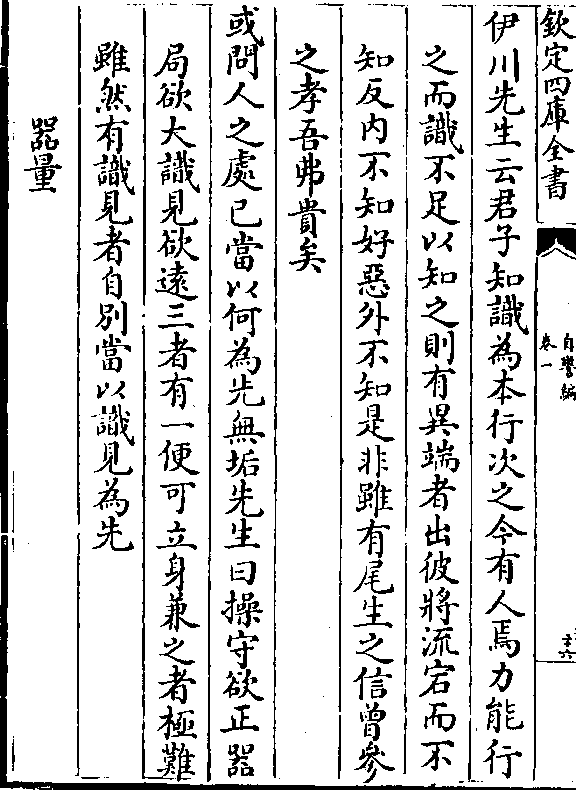 欽定四庫全書
自警編
卷一
十六
伊川先生云君子知識為本行次之今有人焉力能行
之而識不足以知之則有異端者出彼將流宕而不
知反内不知好惡外不知是非雖有尾生之信曾參
之孝吾弗貴矣
或問人之處已當以何為先無垢先生曰操守欲正器
局欲大識見欲遠三者有一便可立身兼之者極難
雖然有識見者自別當以識見為先
器量